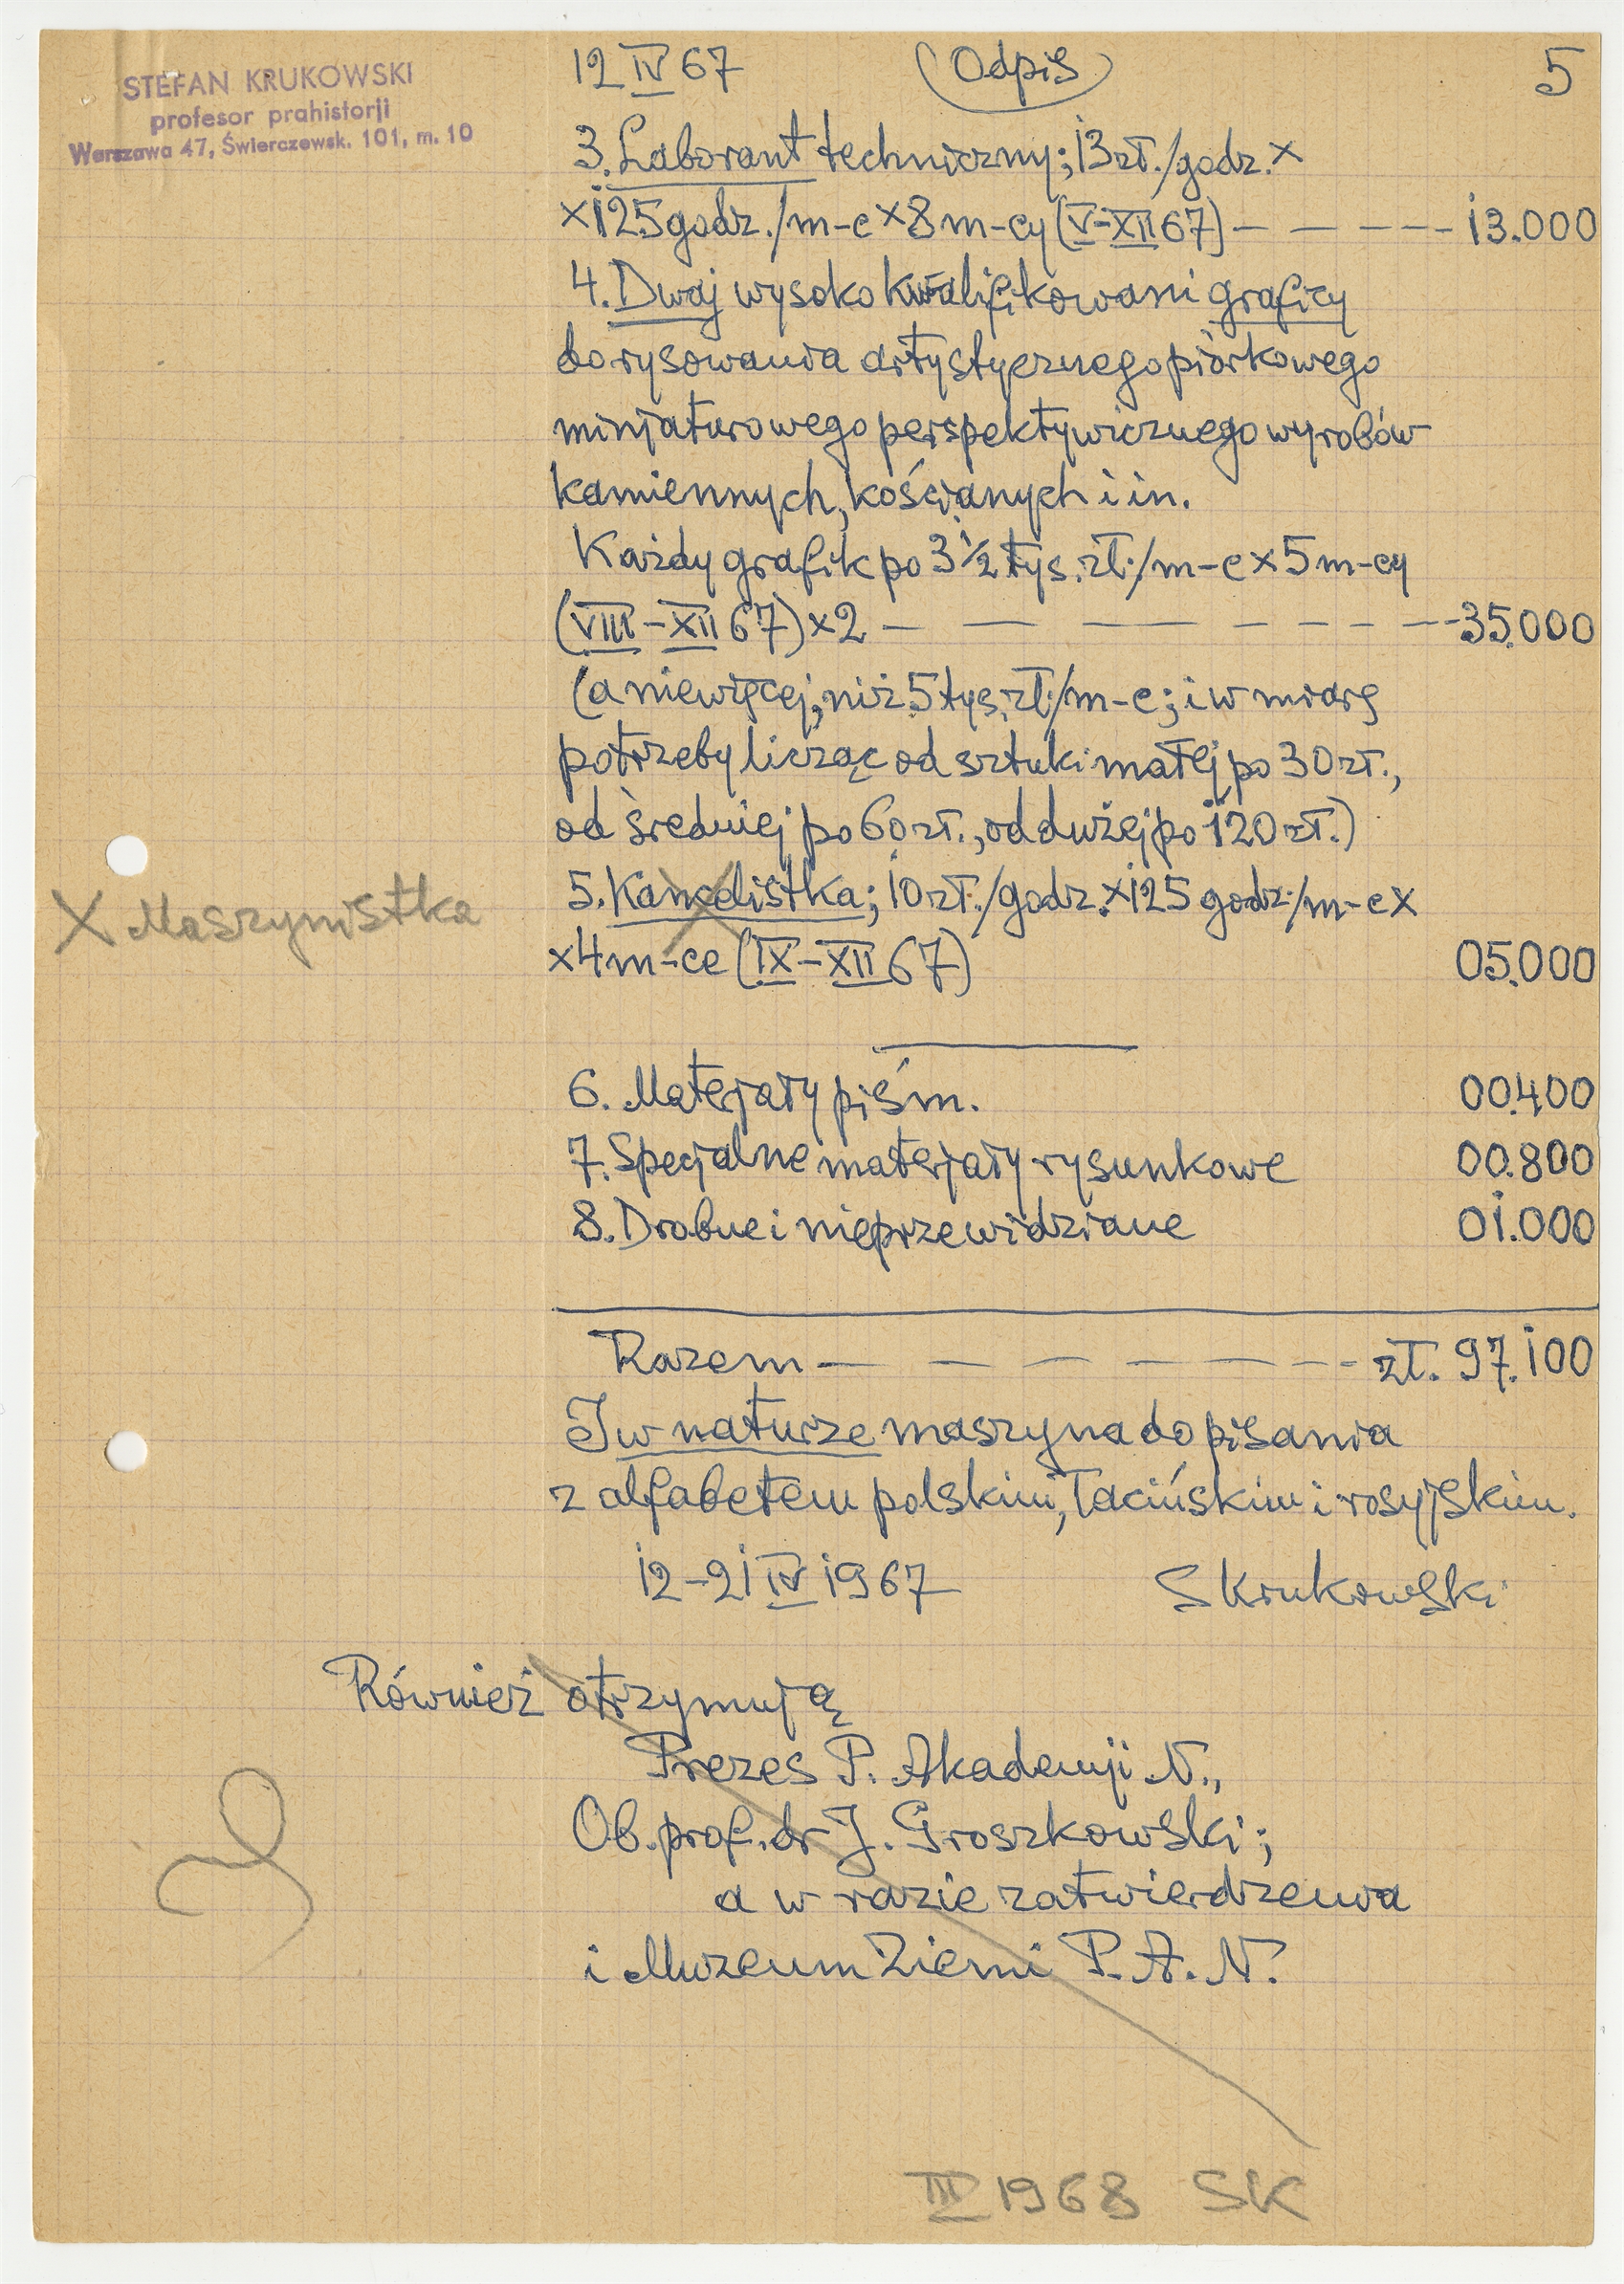 STEFAN KRUKOWSKI
profesor prahistorji
Warszawa 47, Świerczewsk. 101, m. 10
12 IV 67 (Odpis) 5
3. Laborant techniczny; 13 zł./godz. ×
×125 godz./m-c × 8 m-cy (V-XII 67) — — — - - 13.000
4. Dwaj wysoko kwalifikowani graficy
do rysowania artystycznego piórkowego
minjaturowego perspektywicznego wyrobów
kamiennych, kościanych i in.
Każdy grafik po 3 1/2 tys. zł./m-c × 5 m-cy
(VIII-XII 67) × 2 — — — — - - - - 35.000
(a niewięcej, niż 5 tys. zł./m-c; i w miarę
potrzeby licząc od sztuki małej po 30 zł.,
od średniej po 60 zł., od dużej po 120 zł.)
5. Kancelistka; 10 zł./godz. × 125 godz./m-c ×
X Maszynistka
×4 m-ce (IX-XII 67) 05.000
6. Materjały piśm. 00.400
7. Specjalne materjały rysunkowe 00.800
8. Drobne i nieprzewidziane 01.000
Razem — — — — — - - zł. 97.100
I w naturze maszyna do pisania
z alfabetem polskim, łacińskim i rosyjskim.
12-21 IV 1967 SKrukowski
Również otrzymują
Prezes P. Akademji N.,
Ob. prof. dr J. Groszkowski;
a w razie zatwierdzenia
i Muzeum Ziemi P. A. N.
III 1968 SK